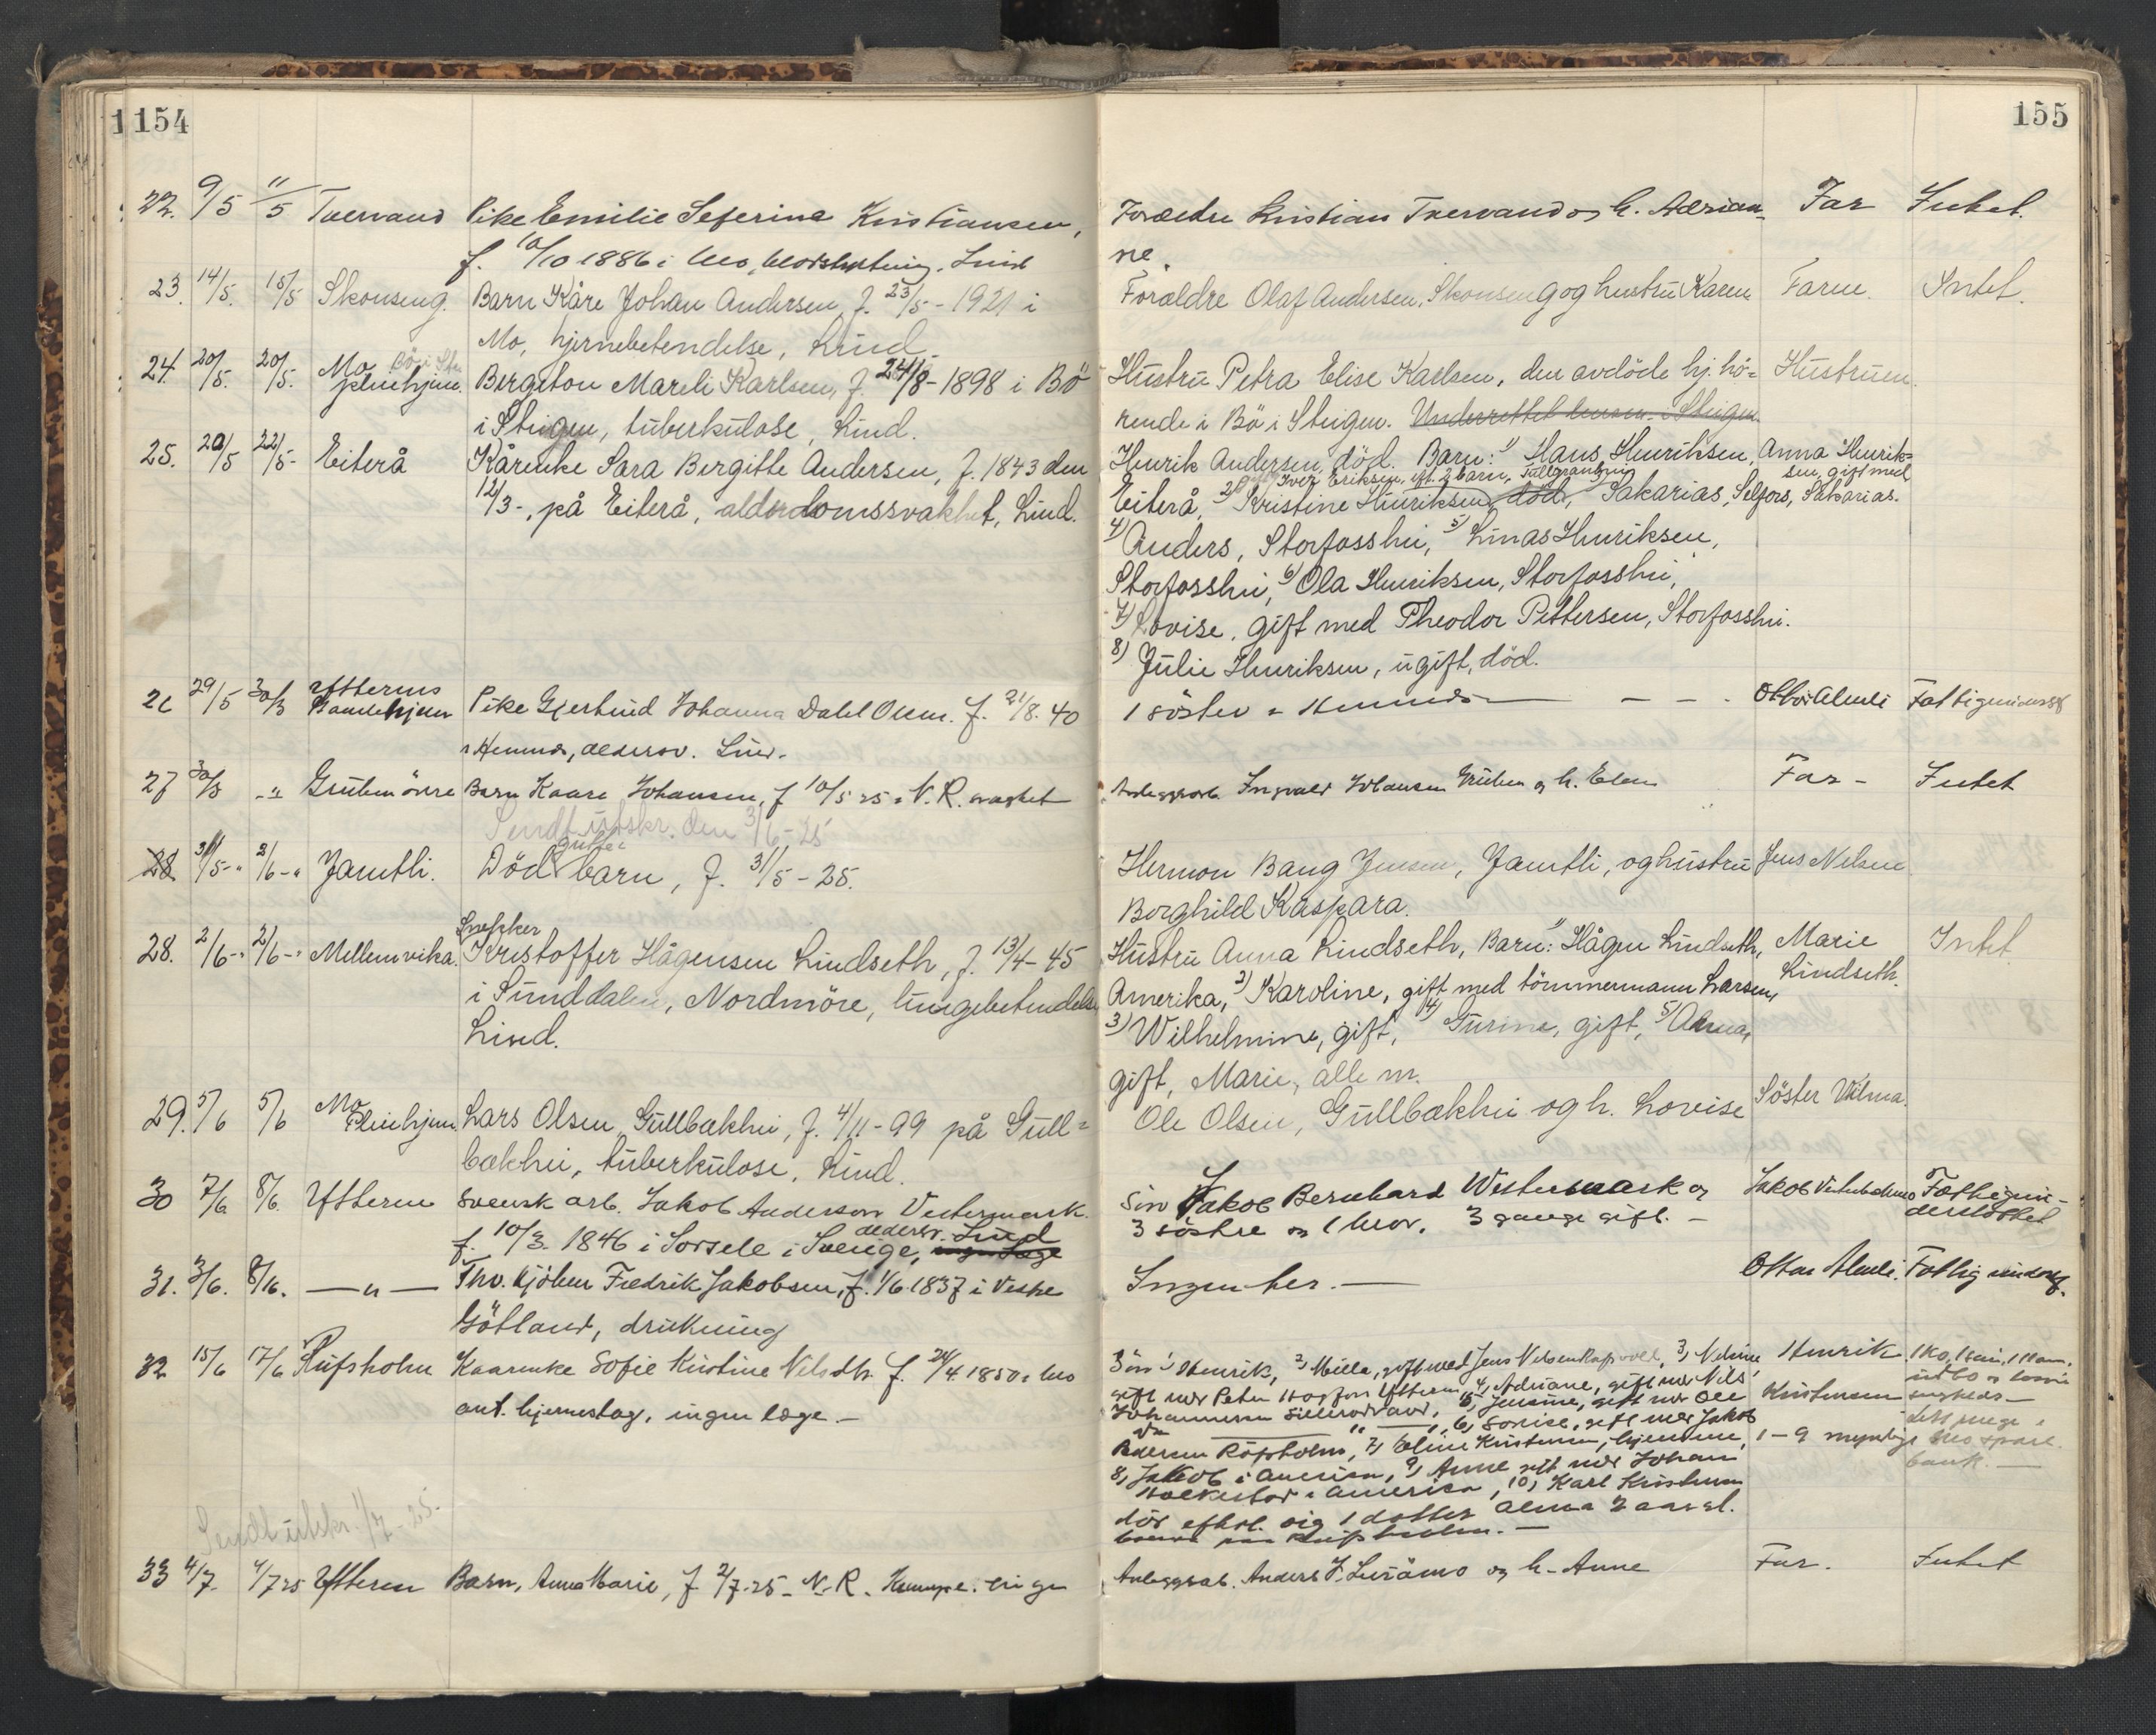 154
22. 9/5 11/5 Tvervand Pike Emilie Seferine Kristiansen,
f. 10/10 1886 i Mo, Lund
23. 14/5. 15/5 Skonseng. Barn Kåre Johan Andersen f. 23/5 - 1921 i
Mo, hjernebetendelse, Lund
24. 20/5. 20/5. Mo Bö i
pleiehjem. Bergiton Mareli Karlsen, f. 24/8 - 1898 i Bö
i Steigen, tuberkulose, Lund.
25. 20/5 22/5- Eiterå Kårenke Sara Bergitte Andersen, f. 1843 den
12/3-, på Eiterå, alderdomssvakhet, Lund.
26 29/5 30/5 Ytterens
Gamlehjem Pike Gjertrud Johanna Dahl Olsen. f. 21/8. 40
i Hemnes, aldersv. Lund.
27 30/5 -"- Gruben övre Barn Kaare Johansen, f 10/5 25 i N. R. svaghet
Sendt utskr. den 3/6 - 25
28 31/5-" 2/6-" Jamtli. Död gutte barn, f. 31/5 - 25.
Snekker
28. 2/6-" 2/6-" Mellemvika. Kristoffer Hågensen Lindseth, f. 13/4 - 45
i Sunddalen, Nordmöre, lungebetendelse,
Lund.
29. 5/6 5/6 Mo
Pleiehjem. Lars Olsen Gullbekhei, f. 4/11 - 99 på Gull=
bekhei, tuberkulose, Lund.
30 7/6 8/6. Ytteren Svensk arb. Jakob Anderson Vestermark.
f. 10/3. 1846 i Sorsele i Sverige, aldersv. Lund
31. 3/6. 8/6. — " — Fhv. kjöbm Fredrik Jakobsen, f. 1/6. 1837 i Vestre
Götland, drukning
32 15/6 17/6 Rufsholm Kaarenke Sofie Kirstine Nilsdtr. f. 24/4 1850 i Mo
ant. hjerneslag, ingen læge. —
Sendt utskr. 1/7 - 25.
33 4/7. 4/7 25 Ytteren Barn, Anna Marie, f 2/7 - 25 - N. R.
155
Forældre Kristian Tvervand og h. Adrian-
ne. Far Intet.
Forældre Olaf Andersen, Skonseng og hustru Karen Faren. Intet.
Hustru Petra Elise Karlsen, den avdöde hj. hö=
rende i Bö i Steigen. Underrettet Steigen Hustruen.
Henrik Andersen, död. Barn: 1) Hans Henriksen, Anna Henrik=
sen, gift med
gift Iver Eriksen, eft. 2 barn,
Eiterå, 2) Kristine Henriksen, död, Sakarias, Selfors, Sakarias.
4) Anders, Storfosshei, 5) Linas Henriksen,
Storfosshei, 6) Ola Henriksen, Storfosshei,
7) Lovise, gift med Theodor Pettersen, Storfosshei.
8) Julie Henriksen, ugift, död.
1 söster i Hemnes — - - - Ottar Almli Fattigunderst
Anleggsarb. Ingvald Johansen Gruben og h. Elen Far - Intet
Hermon Bang Jensen, Jamtli, og hustru Jens Nilsen
Borghild Kaspara.
Hustru Anna Lindseth, Barn: 1) Hågen Lindseth, Marie
Lindseth. Intet
Amerika, 2) Karoline, gift med tömmermann Larsen,
3) Wilhelmine, gift, 4) Gurine, gift, 5) Alma,
gift, Marie, alle m.
Ole Olsen, Gullbekhei og h. Lovise Söster Vilma.
Sön Jakob Bernhard Westermark og Jakob Fattigun-
derstöttet
3 söstre og 1 bror. 3 gange gift. -
Ingen her. — Ottar Almli. Fattig underst.
Sön 1) Henrik, 2) Milla, gift med Jens Nilsen, 3) Nelsine Henrik
Kristensen 1 ko,
gift med Peter Ytteren, 4, Adriane, gift med Nils
Johannesen, 5, Jensine, gift med Ole
— " — , 6, Lovise, gift med Jakob
Pedersen Röfsholm, 7, Eline Kristensen, hjemme, 1 - 9 myndige
8, Jakob i Amerika, 9, Anne gift med Johan
i Amerika, 10, Karl Kristensen
död efterl. sig 1 datter Alma 2 aar gl.
Anleggsarb. Anders J. Luråmo og h. Anne Far. Intet